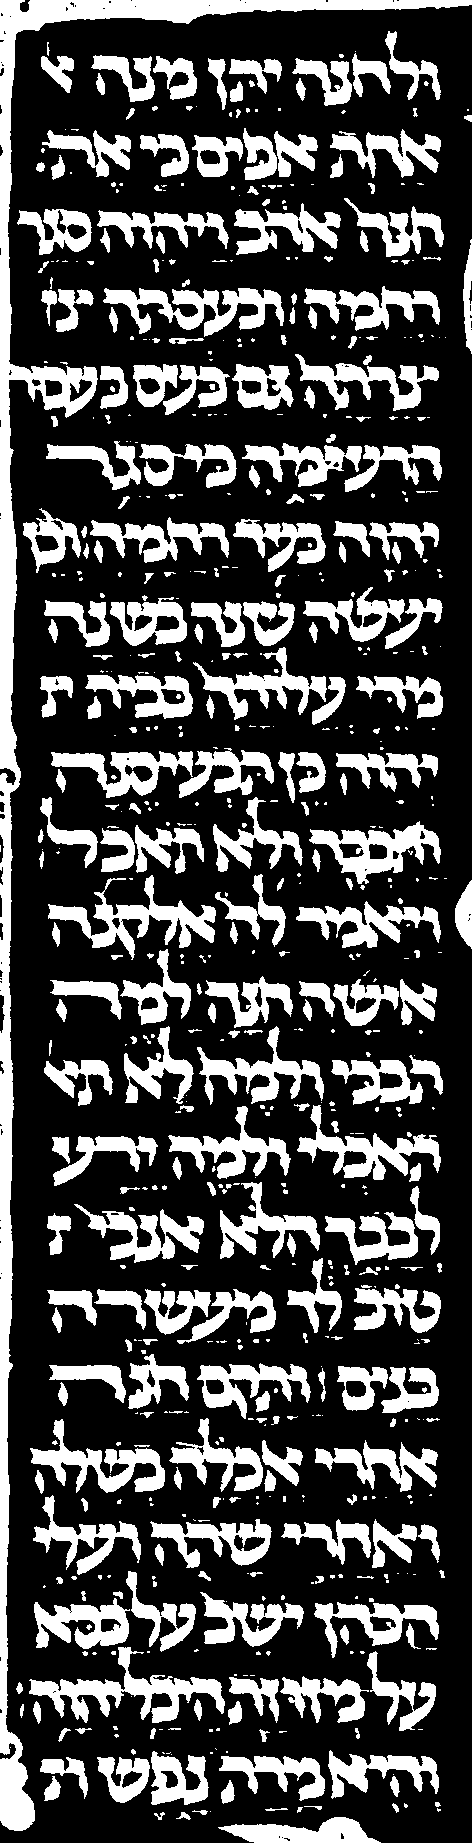 ולחנה יתן מנה א
אחת אפים כי את
חנה אהב ויהוה סגר
רחמה וכעסתה צר
צרתה גם כעס בעבור
הרעימה כי סגר
יהוה בעד רחמה וכן
יעשה שנה בשנה
מדי עלותה בבית י
יהוה כן תכעיסנה
ותבכה ולא תאכל
ויאמר לה אלקנה
אישה חנה למה
תבכי ולמה לא תא
תאכלי ולמה ירע
לבבך הלא אנכי ט
טוב לך מעשרה
בנים ותקם חנה
אחרי אכלה בשלה
ואחרי שתה ועלי
הכהן ישב על כסא
על מזוזת היכל יהוה
והיא מרת נפש ות